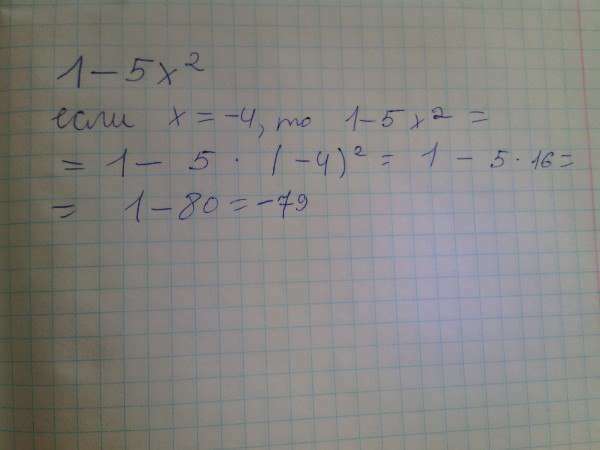 1 - 5x²
если x = -4, то 1 - 5x² =
= 1 - 5 · (-4)² = 1 - 5 · 16 =
= 1 - 80 = -79